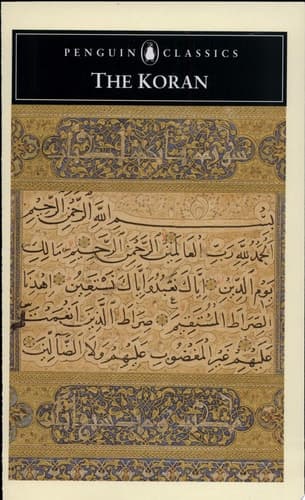 PENGUIN CLASSICS
THE KORAN
بِسْمِ اللَّهِ الرَّحْمَنِ الرَّحِيمِ
الْحَمْدُ لِلَّهِ رَبِّ الْعَالَمِينَ الرَّحْمَنِ الرَّحِيمِ مَالِكِ
يَوْمِ الدِّينِ إِيَّاكَ نَعْبُدُ وَإِيَّاكَ نَسْتَعِينُ اِهْدِنَا
الصِّرَاطَ الْمُسْتَقِيمَ صِرَاطَ الَّذِينَ أَنْعَمْتَ
عَلَيْهِمْ غَيْرِ الْمَغْضُوبِ عَلَيْهِمْ وَلَا الضَّالِّينَ